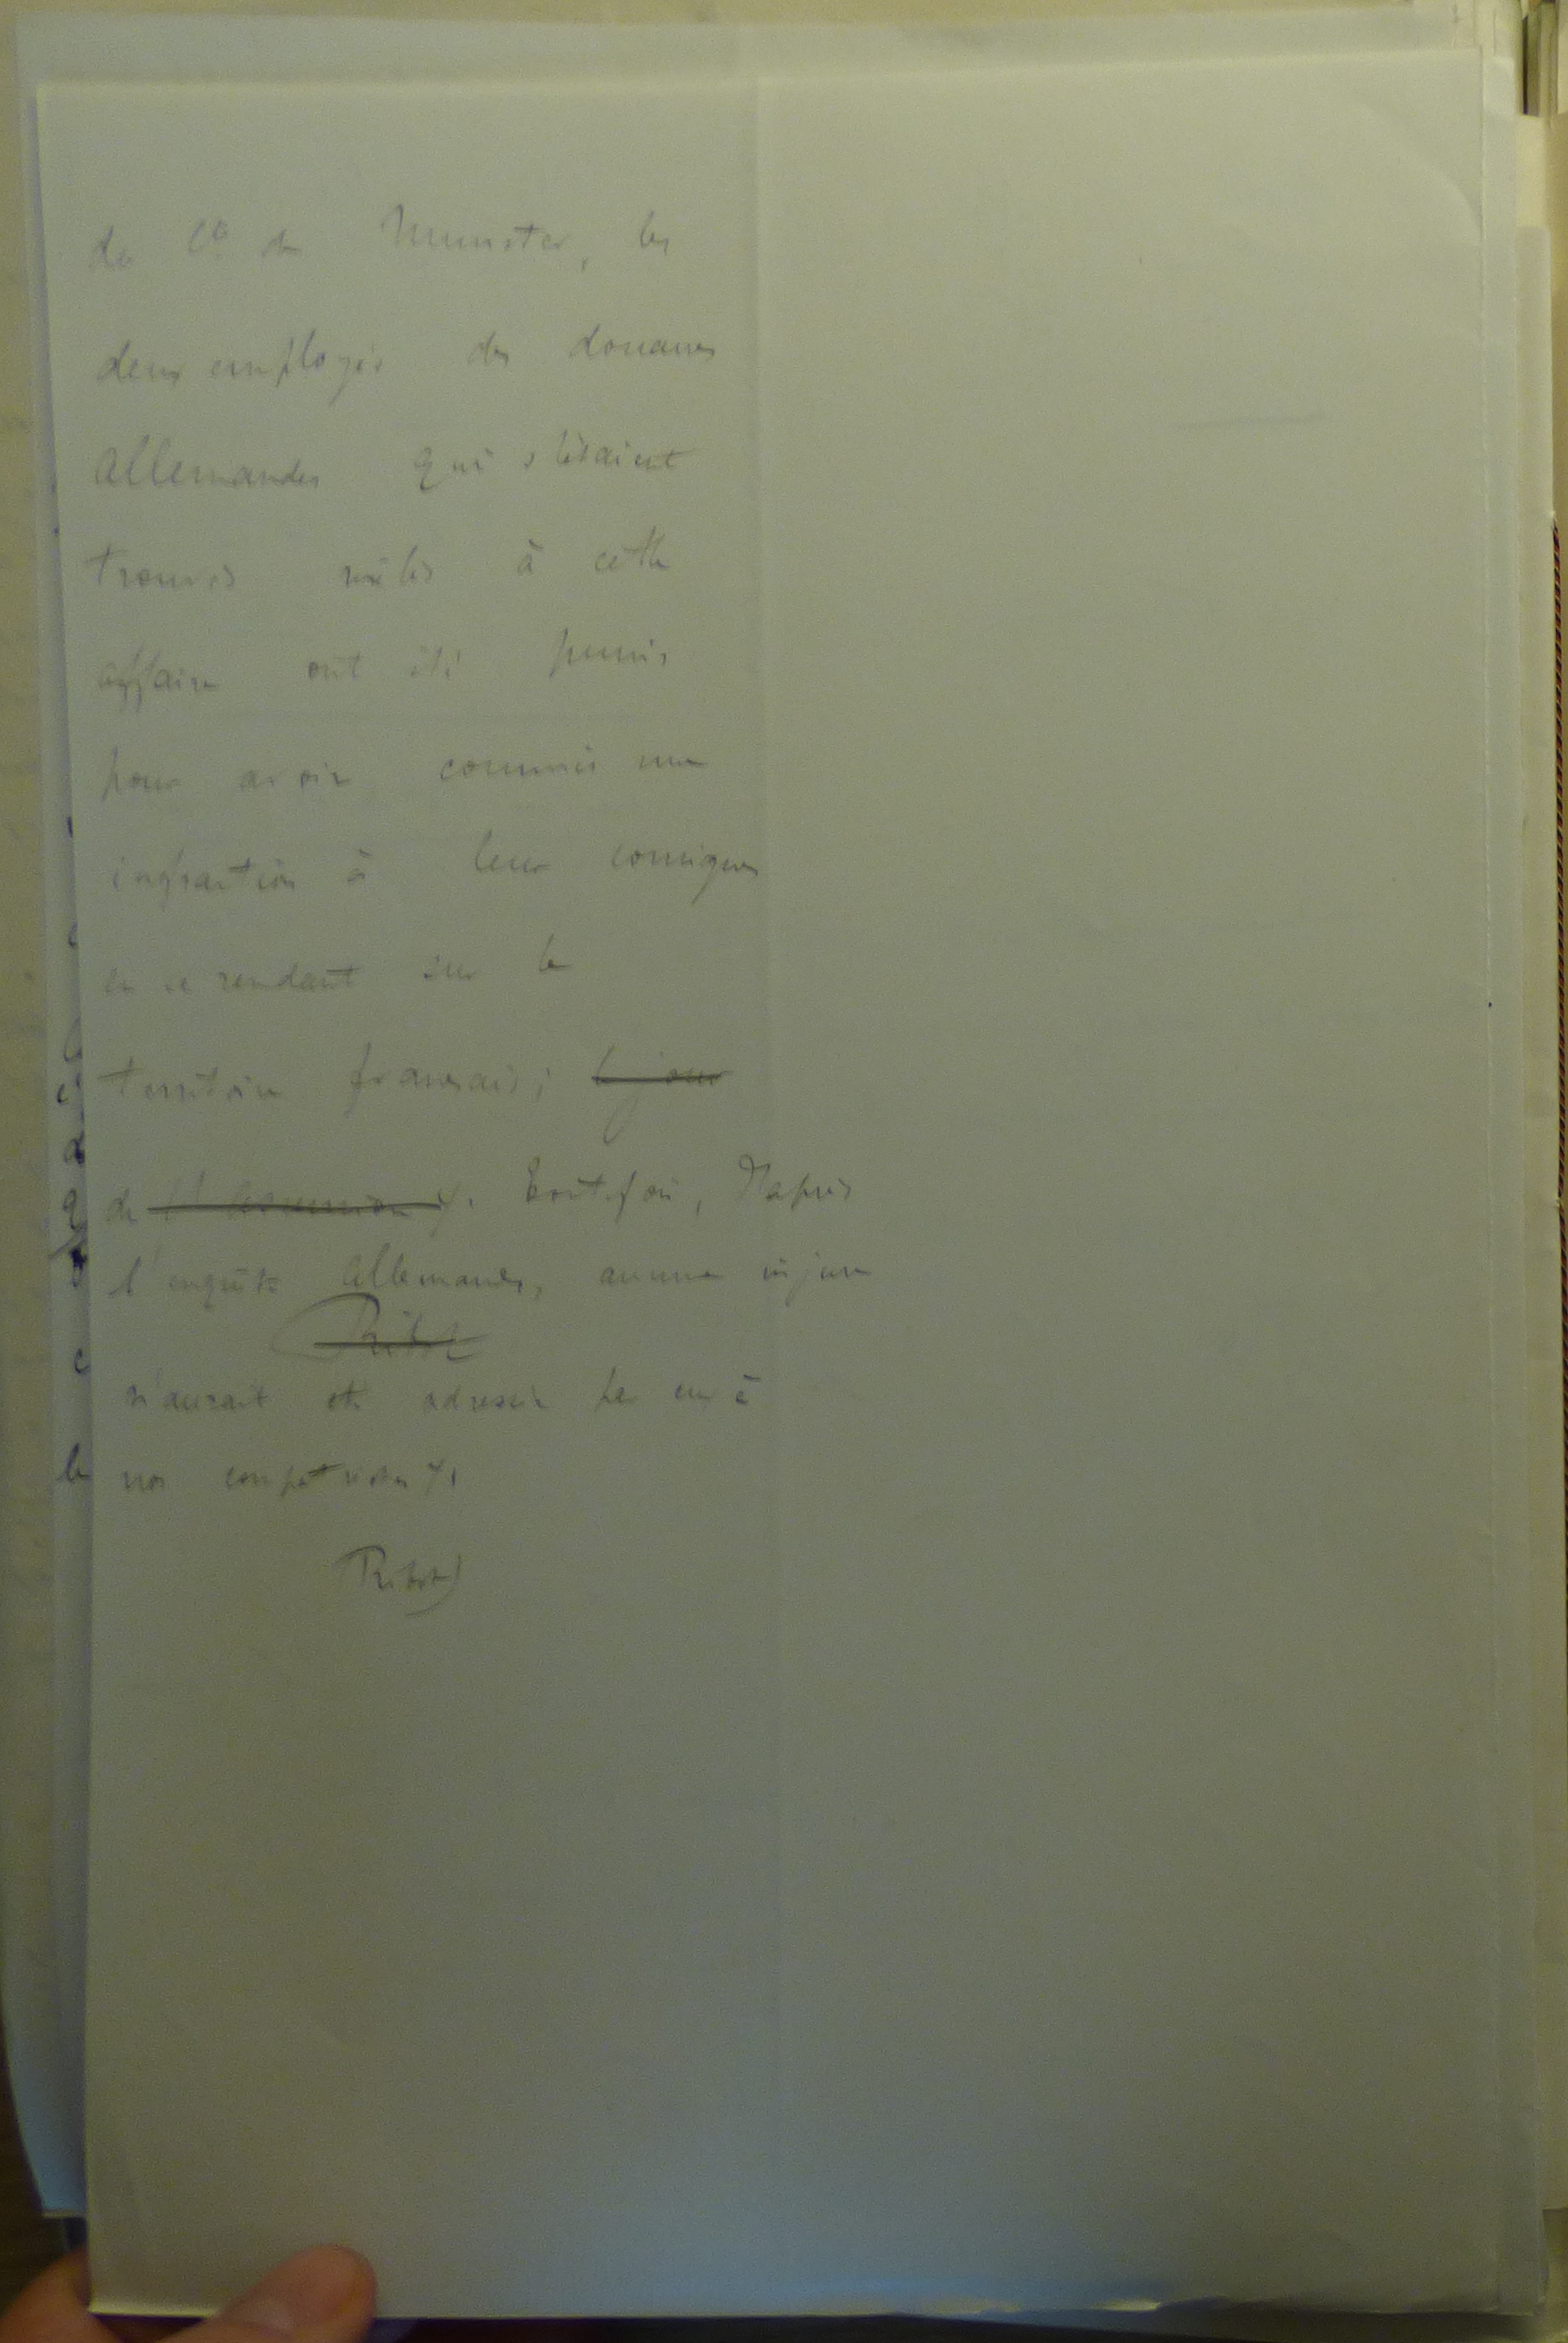 du Cte de Munster, les
deux employés des douanes
allemandes qui s'étaient
trouvés mêlés à cette
affaire ont été punis
pour avoir commis une
infraction à leur consigne
en se rendant sur le
territoire français; le jour
de l'Ascension. Toutefois, d'après
l'enquête allemande, aucune injure
Ribot
n'aurait été adressée par eux à
nos compatriotes.
Ribot)